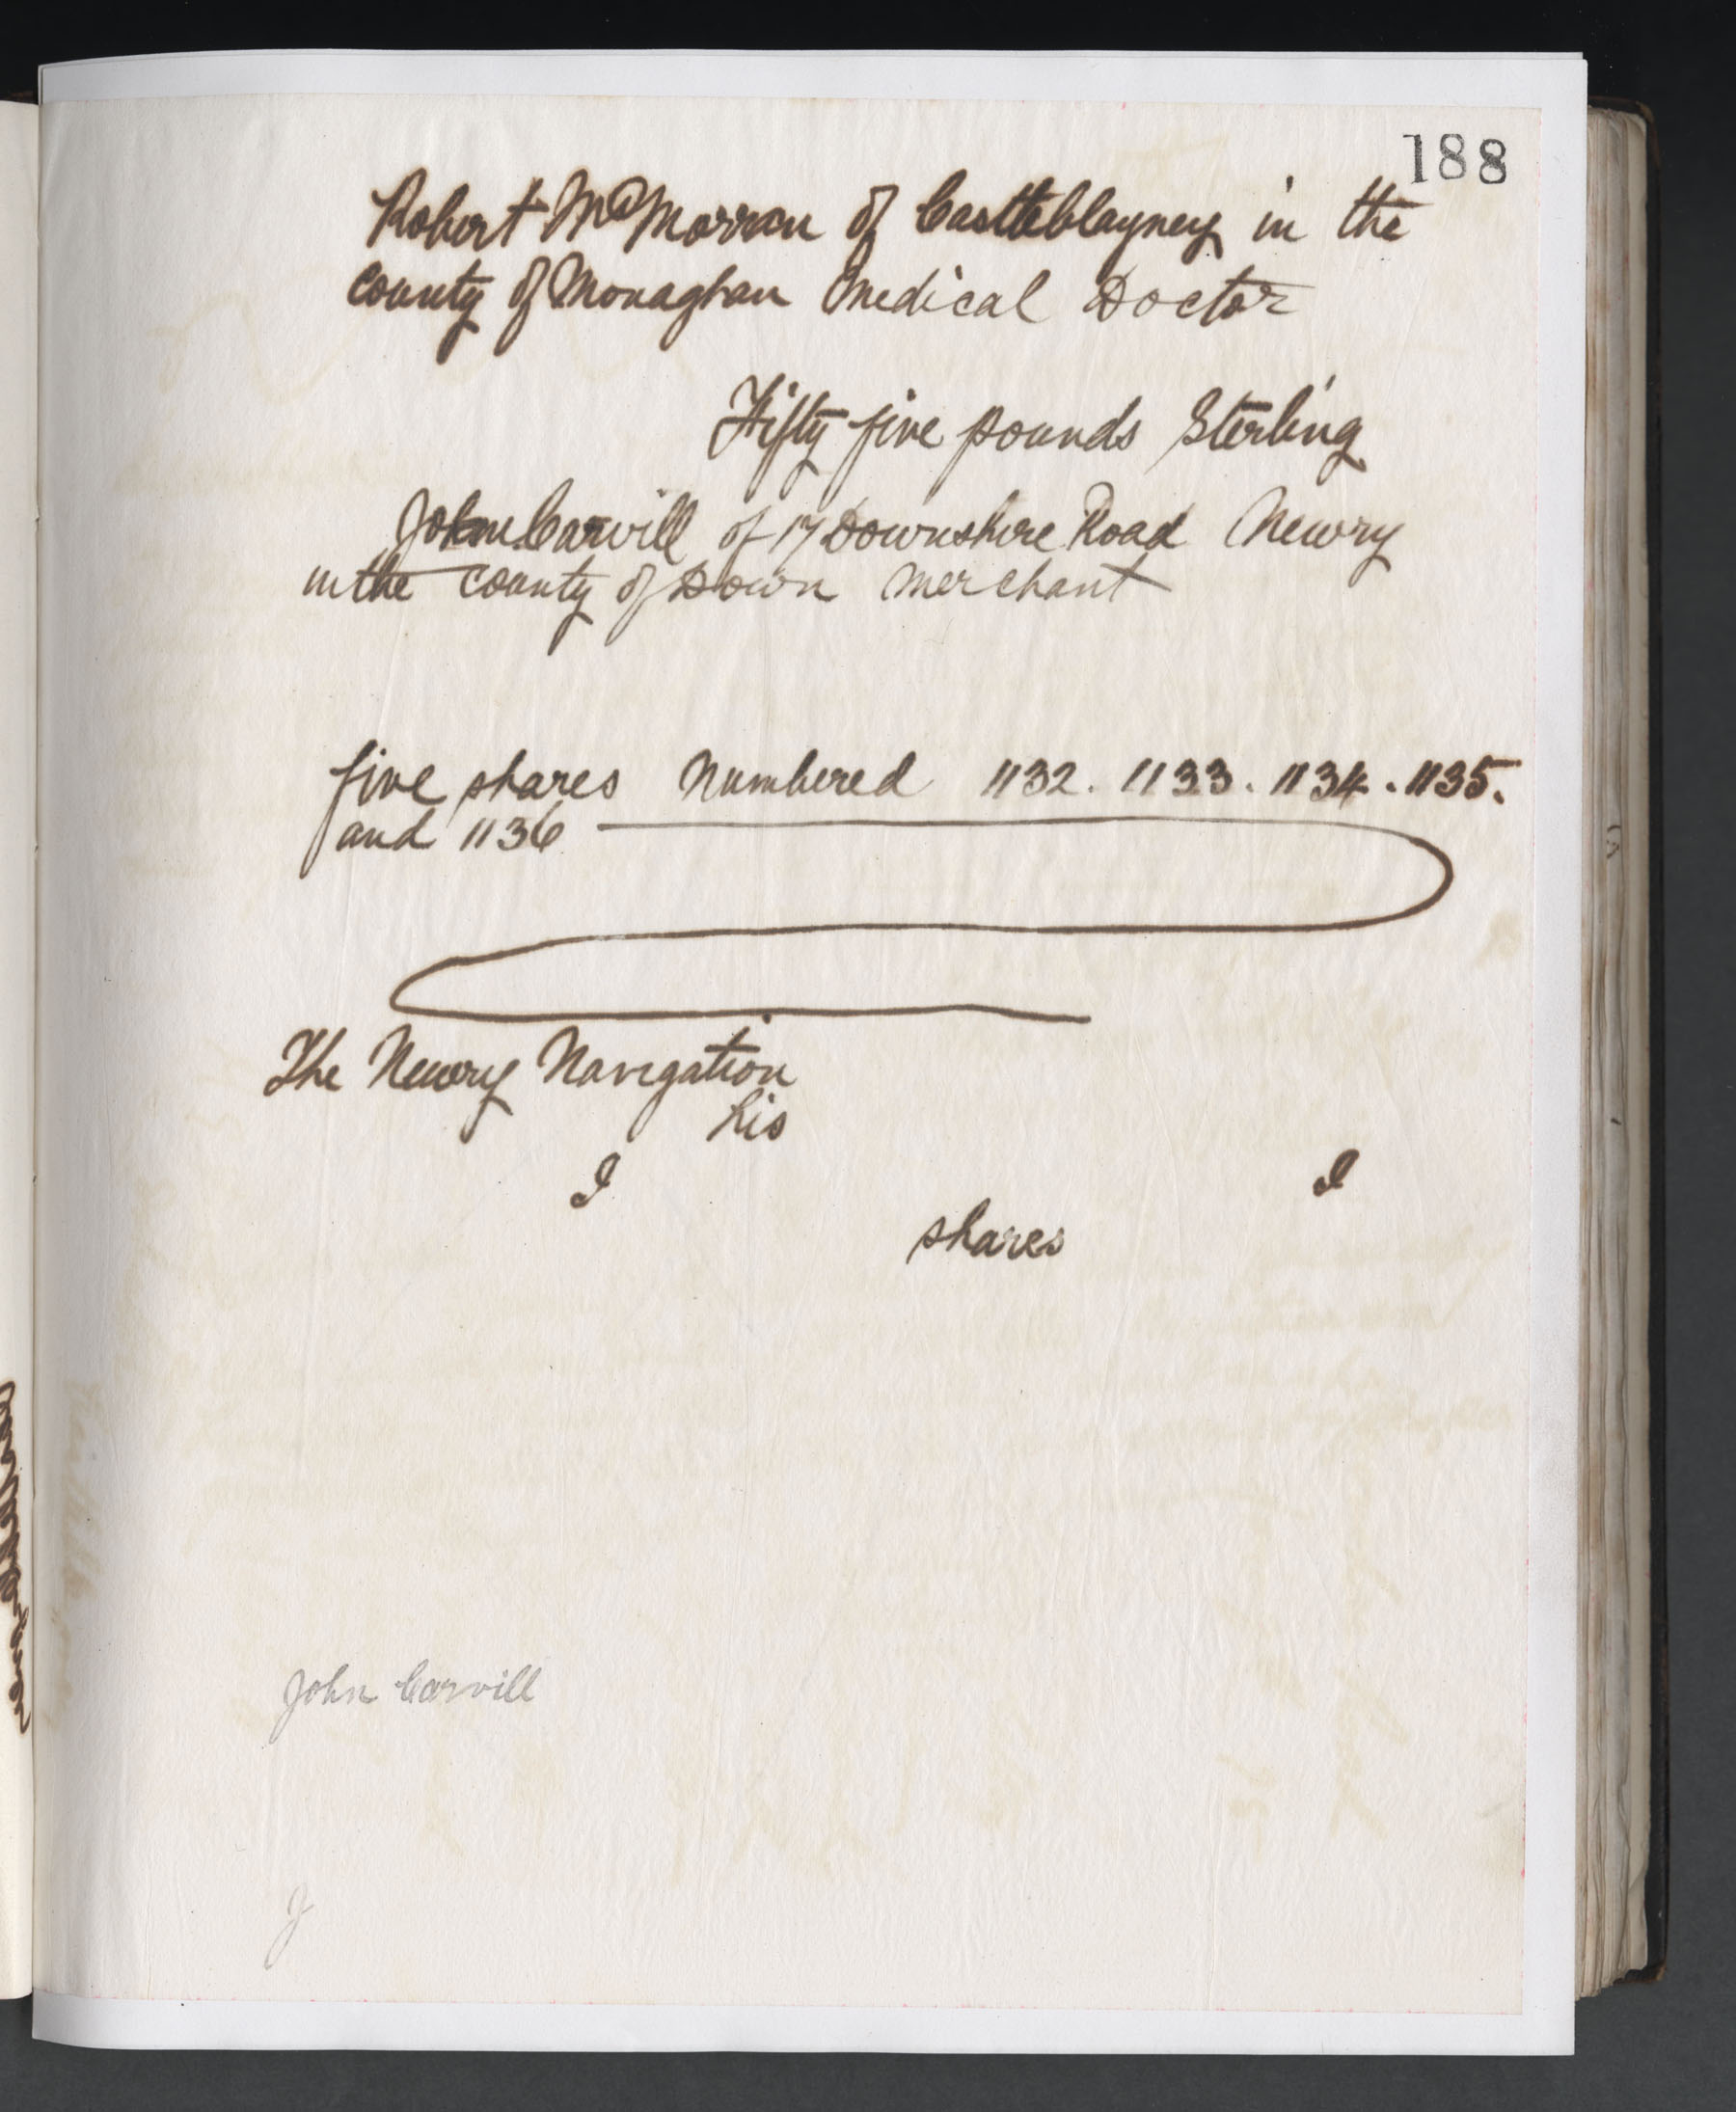 188
Robert McMorran of Castleblayney in the
county of Monaghan Medical Doctor
Fifty five pounds Sterling
John Carvill of 17 Downshire Road Newry
in the county of Down Merchant
five shares Numbered 1132. 1133. 1134. 1135.
and 1136
The Newry Navigation
his
I I
shares
John Carvill
J